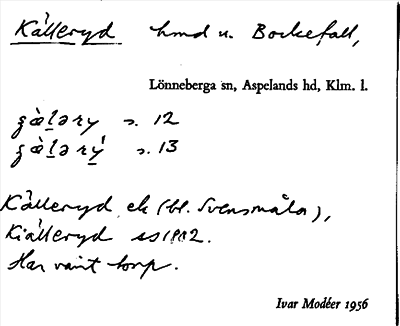 Källeryd hmd u. Bockefall,
Lönneberga sn, Aspelands hd, Klm. l.
s. 12
s. 13
Källeryd ek (bl. Svensmåla),
Kiälleryd
Har varit torp.
Ivar Modéer 1956